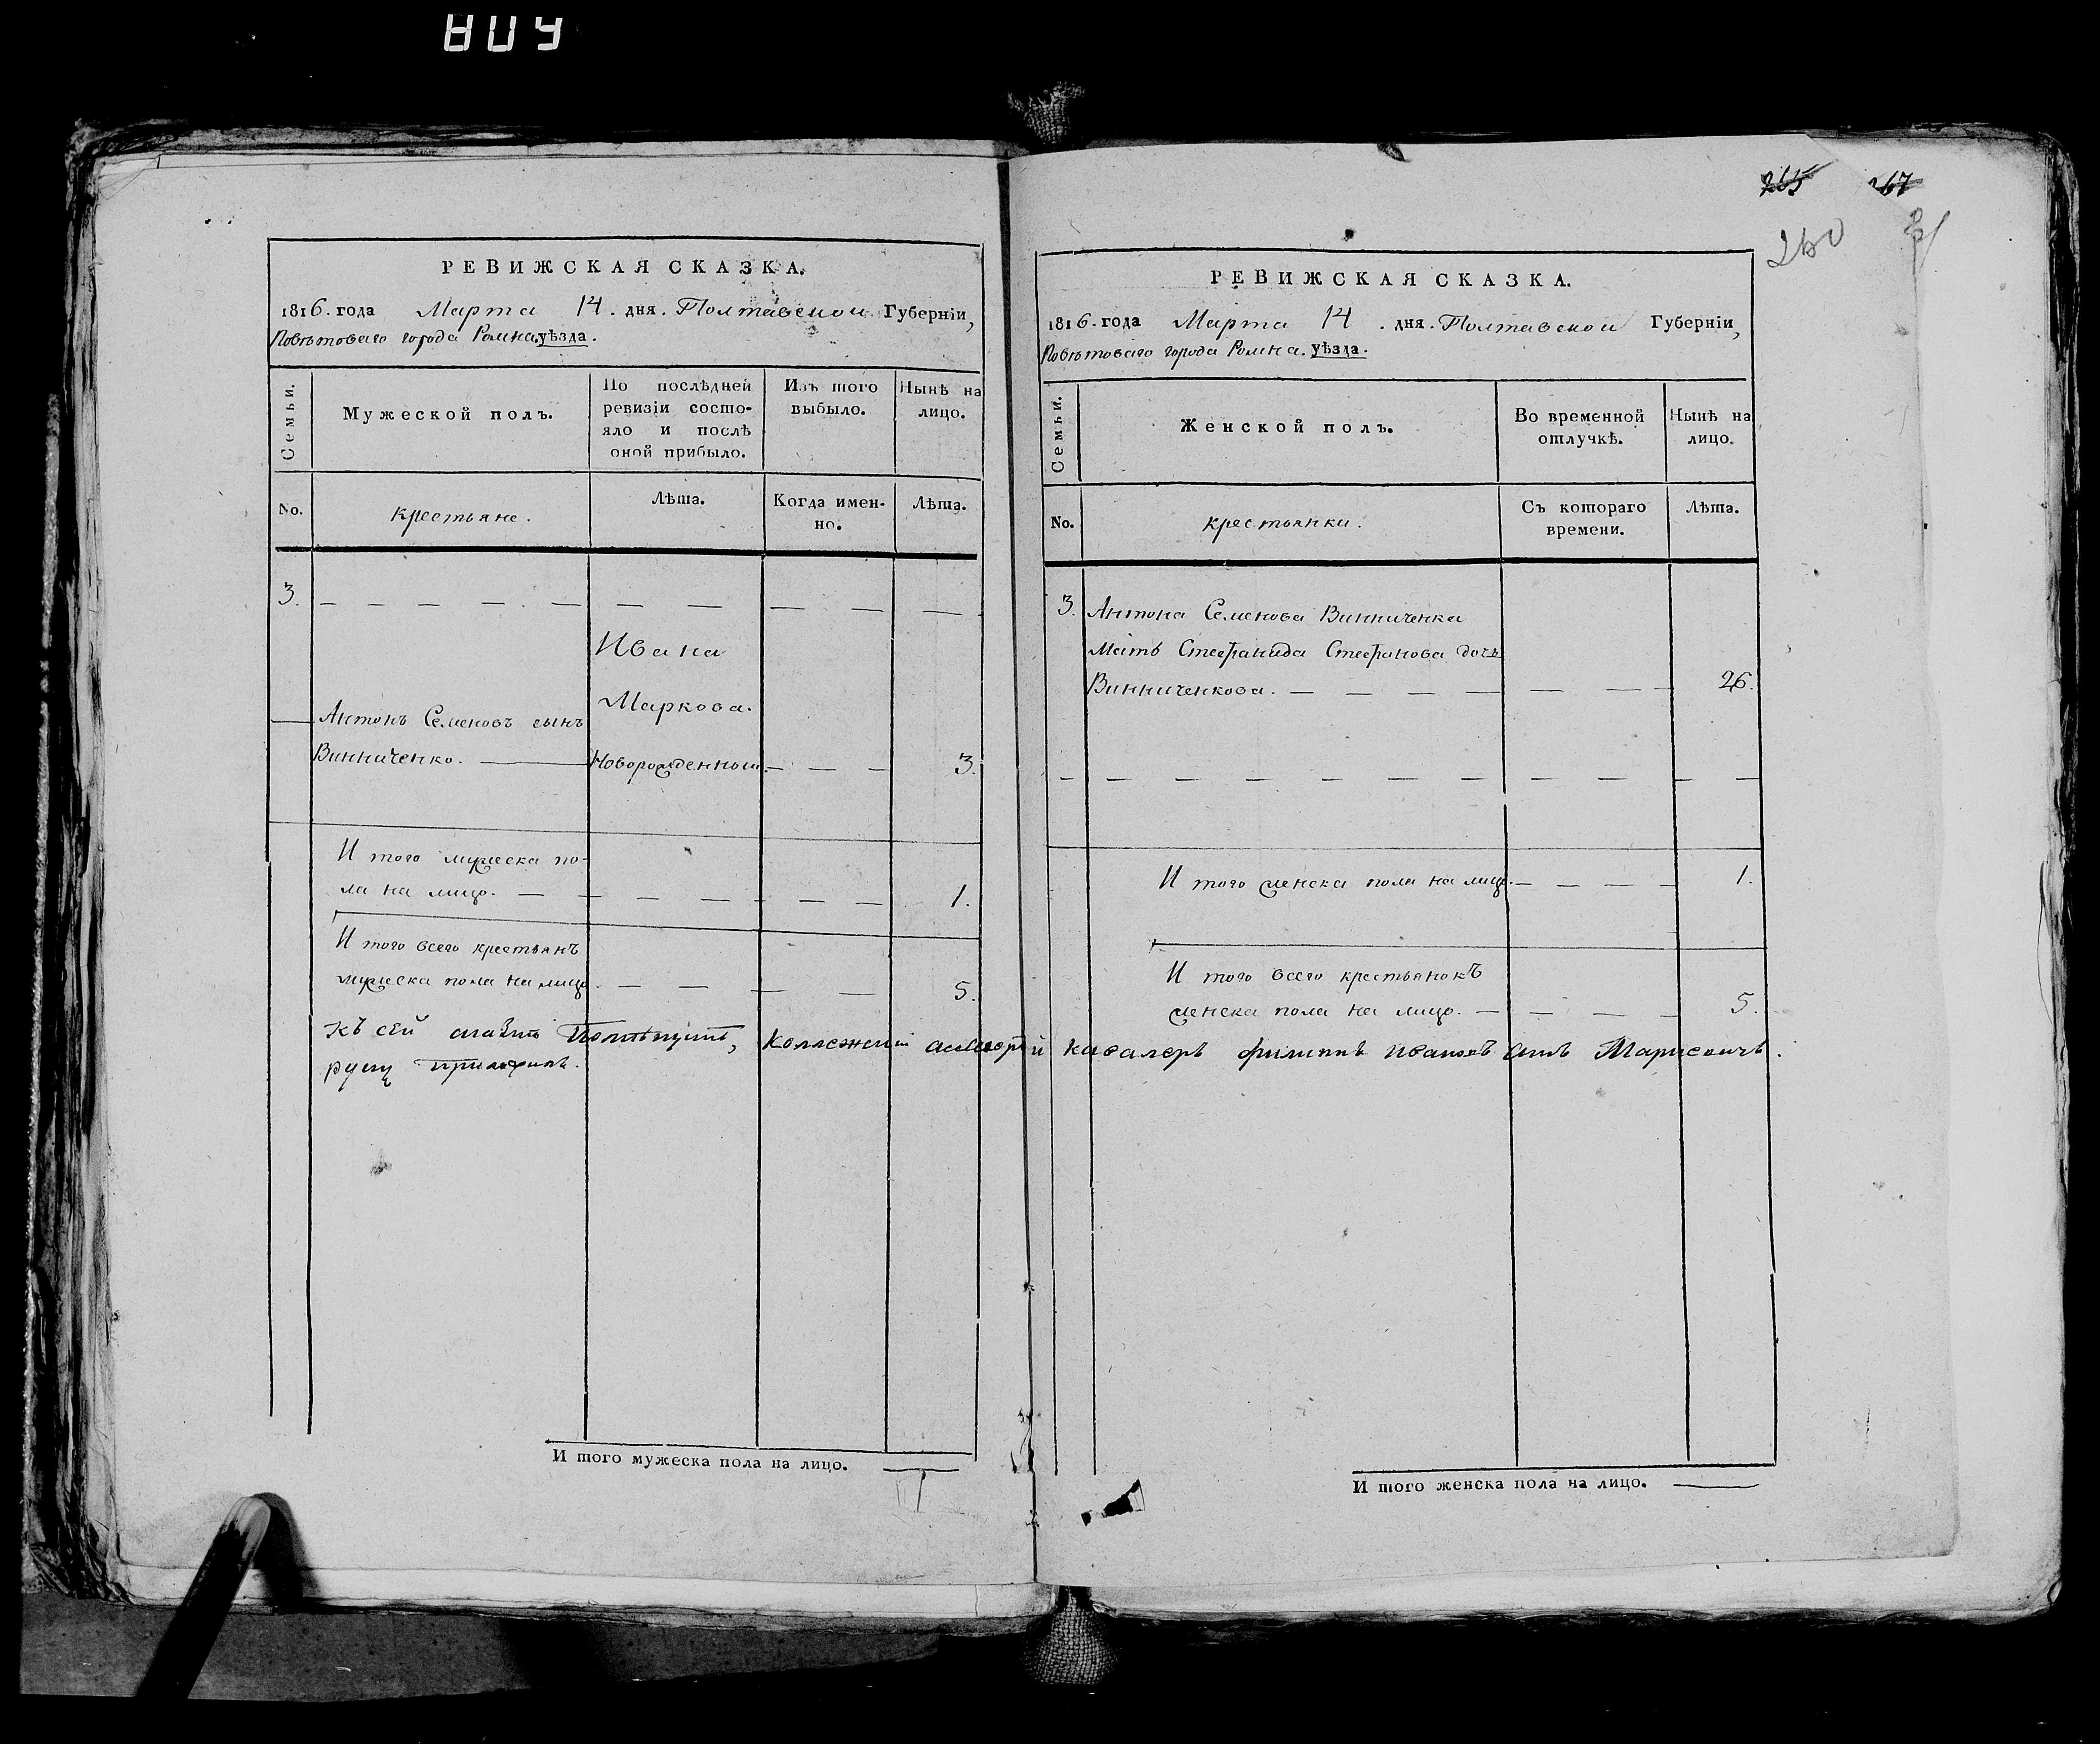 809
265 267
260
РЕВИЖСКАЯ СКАЗКА.
1816. года Марта 14. дня. Полтавской Губерніи,
Повѣтоваго города Ромна. уѣзда.
Семьи.
Мужеской полъ.
По послѣдней
ревизіи состо-
яло и послѣ
оной прибыло.
Изъ того
выбыло.
Нынѣ на
лицо.
No.
крестьяне.
Лѣта.
Когда имен-
но.
Лѣта.
3.
Ивана
Маркова.
Антонъ Семеновъ сынъ
Винниченко. Новорожденный. 3.
И того мужеска по-
ла на лицо. 1.
И того всего крестьянъ
мужеска пола на лицо. 5.
Къ сей Коллежский асессоръ и кавалеръ филиппъ Ивановъ сынъ
руку приложилъ.
И того мужеска пола на лицо.
РЕВИЖСКАЯ СКАЗКА.
1816. года Марта 14. дня. Полтавской Губерніи,
Повѣтоваго города Ромна. уѣзда.
Семьи.
Женской полъ.
Во временной
отлучкѣ.
Нынѣ на
лицо.
No.
крестьянки.
Съ котораго
времени.
Лѣта.
3. Антона Семенова Винниченка
Мать Стефанида Стефанова дочь
Винниченкова. 26.
И того женска пола на лицо. 1.
И того всего крестьянокъ
женска пола на лицо. 5.
И того женска пола на лицо.